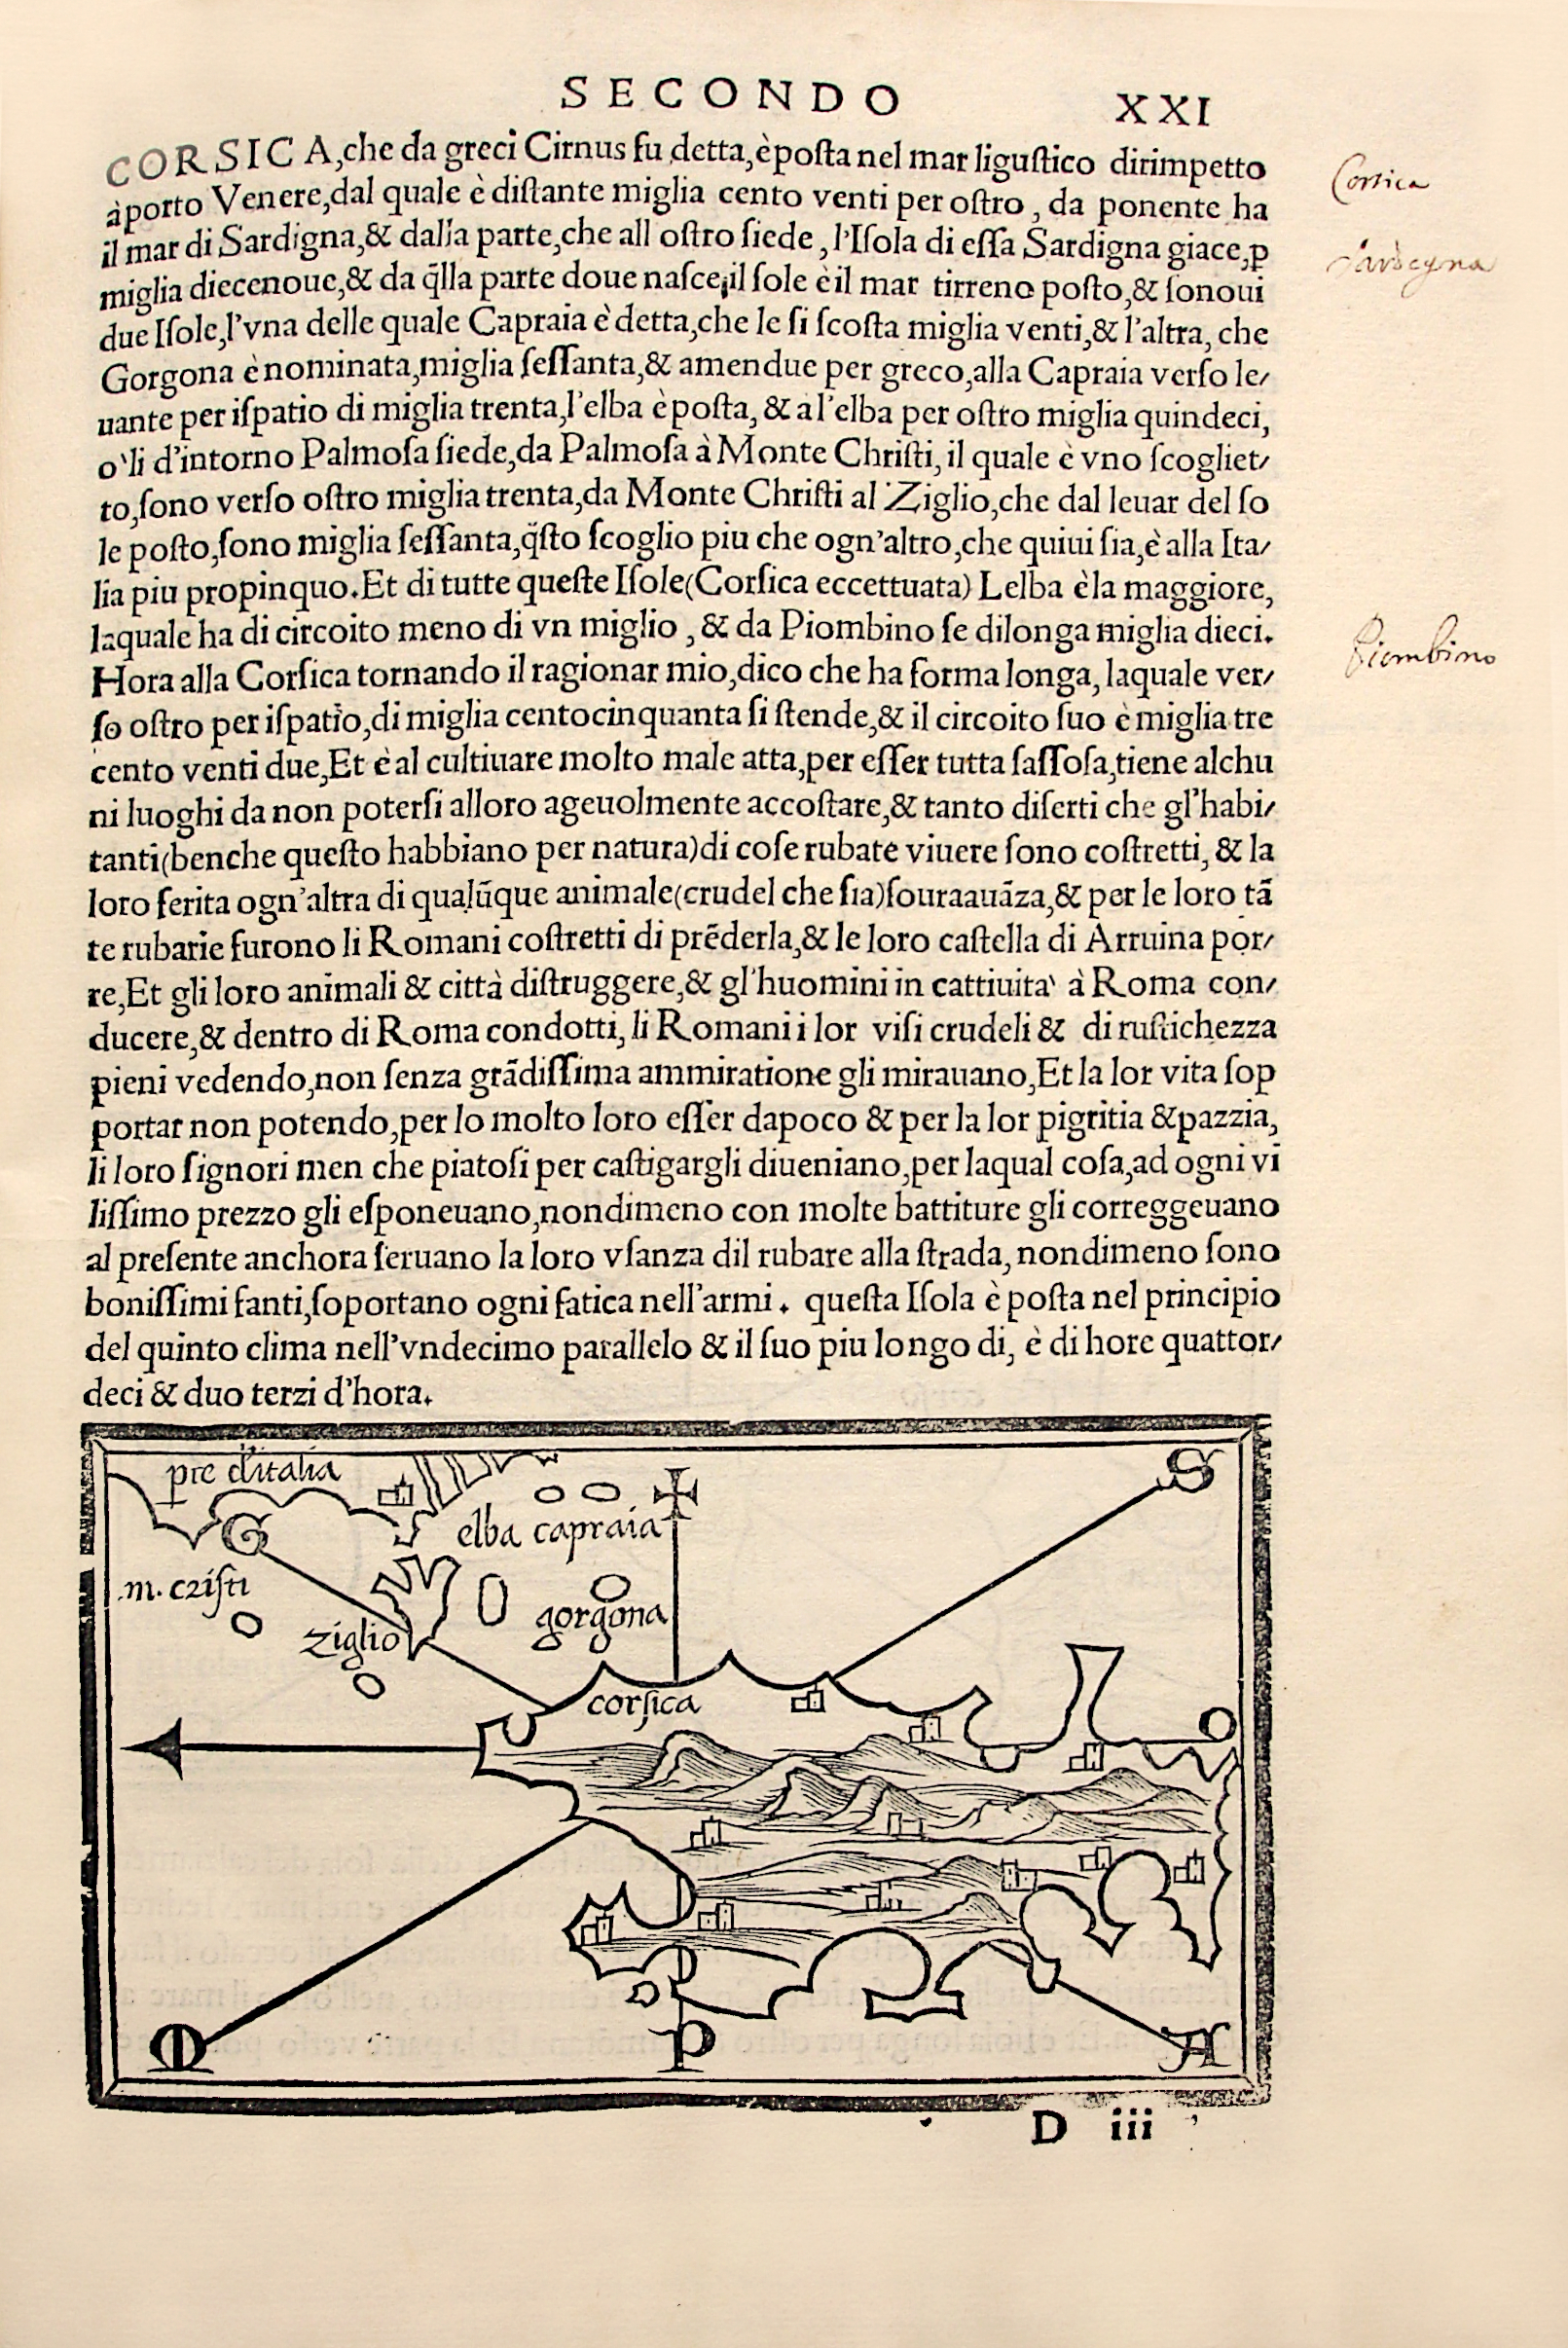 SECONDO XXI
CORSICA,che da greci Cirnus fu detta,è posta nel mar ligustico dirimpetto
à porto Venere,dal quale è distante miglia cento venti per ostro, da ponente ha
il mar di Sardigna,& dalla parte,che all ostro siede, l'Isola di essa Sardigna giace,ꝑ
miglia diecenoue,& da q̃lla parte doue nasce il sole è il mar tirreno posto,& sonoui
due Isole,l'vna delle quale Capraia è detta,che le si scosta miglia venti,& l'altra, che
Gorgona è nominata,miglia sessanta,& amendue per greco,alla Capraia verso le/
uante per ispatio di miglia trenta,l'elba è posta, & a l'elba per ostro miglia quindeci,
o'li d'intorno Palmosa siede,da Palmosa à Monte Christi, il quale è vno scogliet/
to,sono verso ostro miglia trenta,da Monte Christi al Ziglio,che dal leuar del so
le posto,sono miglia sessanta,q̃sto scoglio piu che ogn'altro,che quiui sia,è alla Ita/
lia piu propinquo.Et di tutte queste Isole(Corsica eccettuata) Lelba è la maggiore,
laquale ha di circoito meno di vn miglio, & da Piombino se dilonga miglia dieci.
Hora alla Corsica tornando il ragionar mio,dico che ha forma longa, laquale ver/
so ostro per ispatio,di miglia centocinquanta si stende,& il circoito suo è miglia tre
cento venti due,Et è al cultiuare molto male atta,per esser tutta sassosa,tiene alchu
ni luoghi da non potersi alloro ageuolmente accostare,& tanto diserti che gl'habi/
tanti(benche questo habbiano per natura)di cose rubate viuere sono costretti, & la
loro ferita ogn'altra di qualũque animale(crudel che sia)souraauãza,& per le loro tã
te rubarie furono li Romani costretti di prẽderla,& le loro castella di Arruina por/
re,Et gli loro animali & città distruggere,& gl'huomini in cattiuita' à Roma con/
ducere,& dentro di Roma condotti, li Romani i lor visi crudeli & di rustichezza
pieni vedendo,non senza grãdissima ammiratione gli mirauano,Et la lor vita sop
portar non potendo,per lo molto loro esser dapoco & per la lor pigritia &pazzia,
li loro signori men che piatosi per castigargli diueniano,per laqual cosa,ad ogni vi
lissimo prezzo gli esponeuano,nondimeno con molte battiture gli correggeuano
al presente anchora seruano la loro vsanza dil rubare alla strada, nondimeno sono
bonissimi fanti,soportano ogni fatica nell'armi. questa Isola è posta nel principio
del quinto clima nell'vndecimo parallelo & il suo piu longo di, è di hore quattor/
deci & duo terzi d'hora.
Corsica
Sardegna
Piombino
pte d'italia
S
G
elba capraia
m. cristi
gorgona
ziglio
corsica
O
M
P
A
D iii